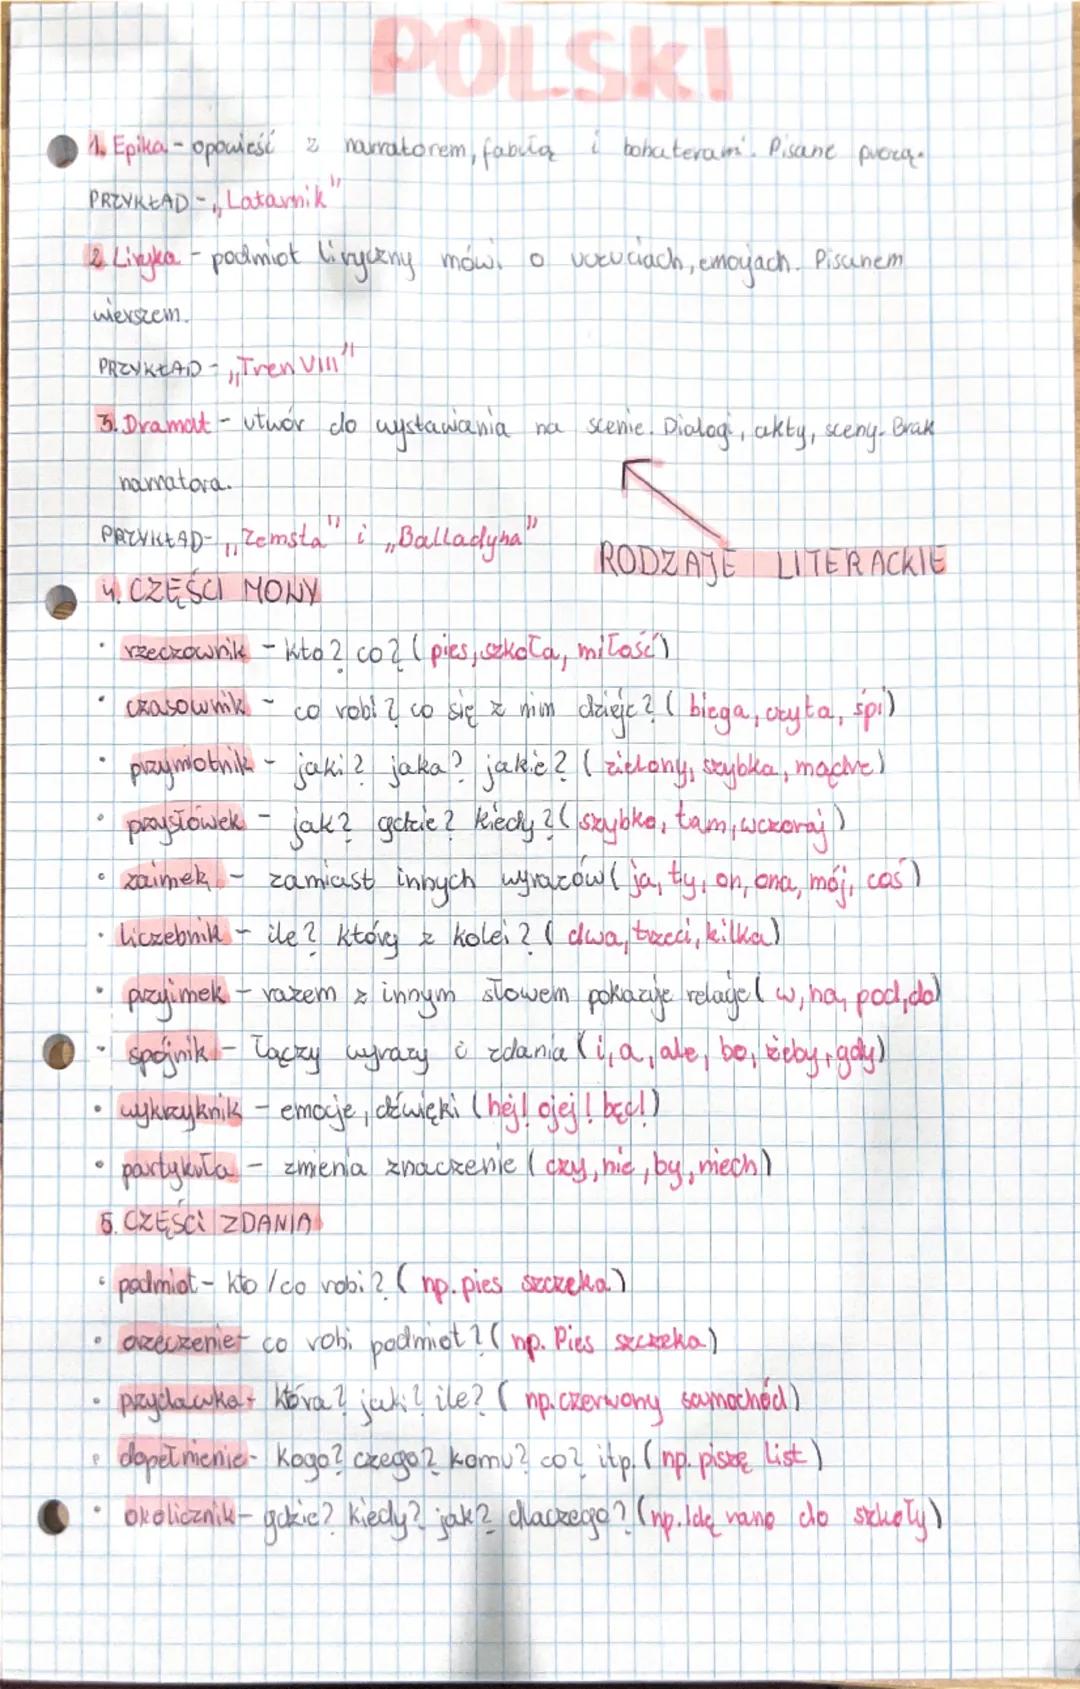 POLSKI
1. Epika - opowieść z narratorem, fabułą i bohaterami. Pisane prozą.
PRZYKŁAD - „Latarnik"
2. Liryka - podmiot liryczny mówi o uczuciach, emocjach. Pisanem
wierszem.
PRZYKŁAD - „Tren VIII"
3. Dramat - utwór do wystawiania na scenie. Dialogi, akty, sceny. Brak
narratora.
PRZYKŁAD - „Zemsta" i „Balladyna"
RODZAJE LITERACKIE
4. CZĘŚCI MOWY
• rzeczownik - kto? co? (pies, szkoła, miłość)
• czasownik - co robi? co się z nim dzieje? (biega, czyta, śpi)
• przymiotnik - jaki? jaka? jakie? (zielony, szybka, mądre)
• przysłówek - jak? gdzie? kiedy? (szybko, tam, wczoraj)
• zaimek - zamiast innych wyrazów (ja, ty, on, ona, mój, coś)
• liczebnik - ile? który z kolei? (dwa, trzeci, kilka)
• przyimek - razem z innym słowem pokazuje relacje (w, na, pod, do)
• spójnik - łączy wyrazy i zdania (i, a, ale, bo, żeby, gdy)
• wykrzyknik - emocje, dźwięki (hej! ojej! bęc!)
• partykuła - zmienia znaczenie (czy, nie, by, niech)
5. CZĘŚCI ZDANIA
• podmiot - kto / co robi? (np. pies szczeka)
• orzeczenie - co robi podmiot? (np. Pies szczeka)
• przydawka - która? jaki? ile? (np. czerwony samochód)
• dopełnienie - kogo? czego? komu? co? itp. (np. piszę list)
• okolicznik - gdzie? kiedy? jak? dlaczego? (np. Idę rano do szkoły)